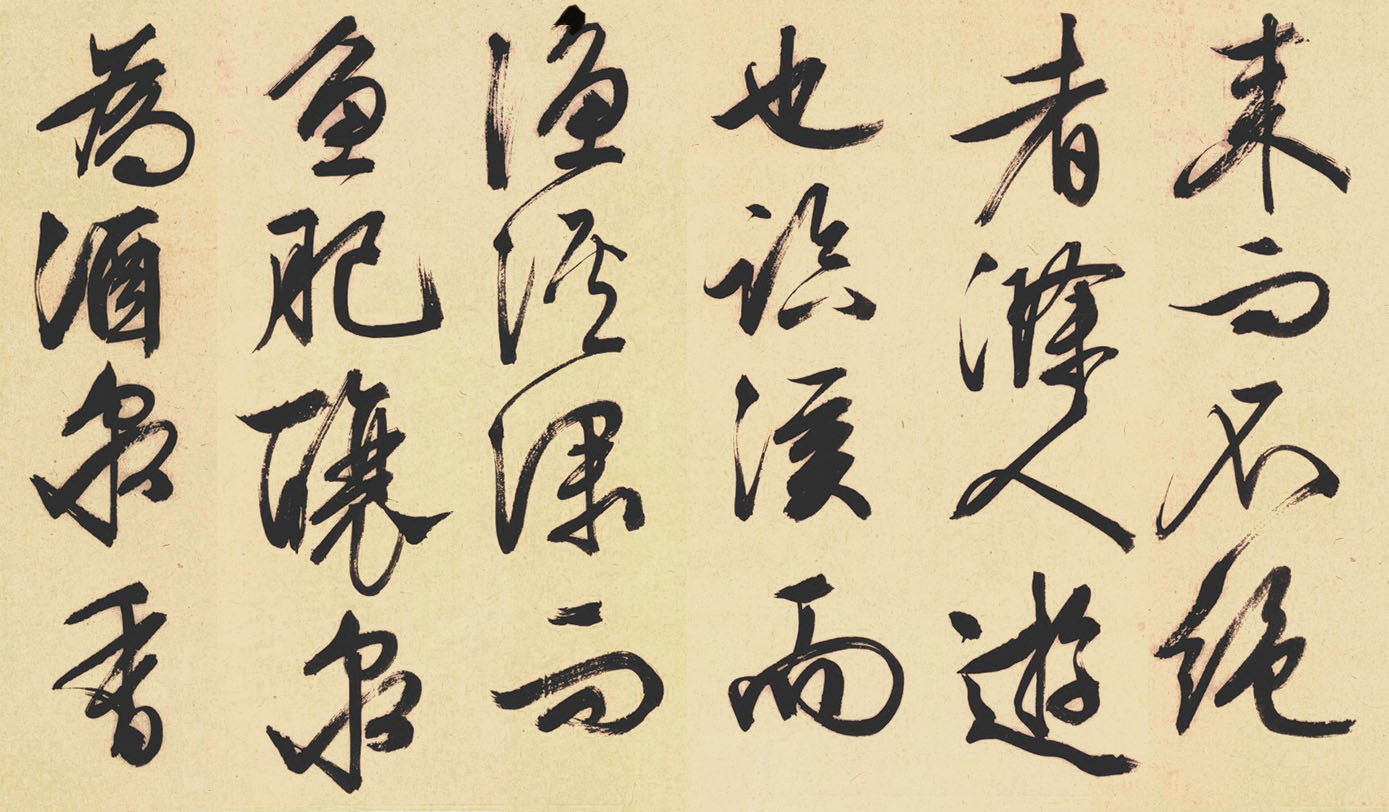 来而不絶
者滁人遊
也臨溪而
漁溪深而
魚肥釀泉
為酒泉香